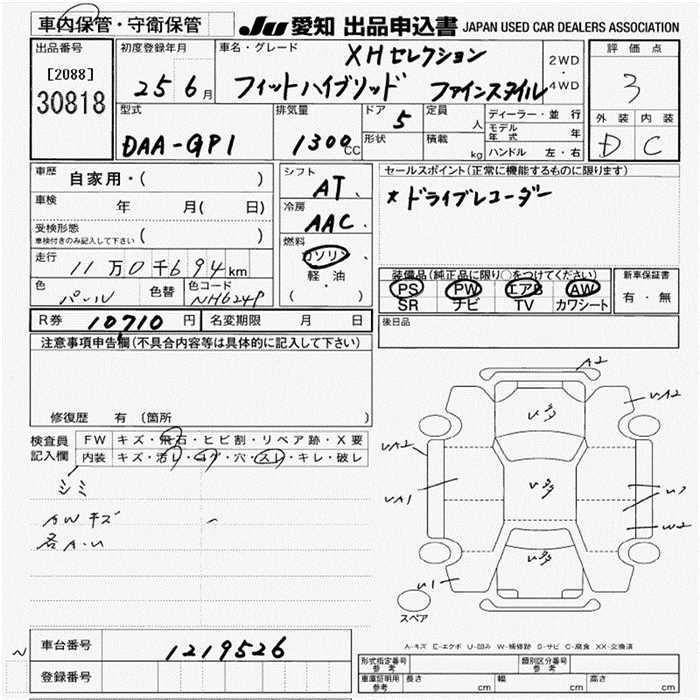 車内保管・守衛保管
JU 愛知 出品申込書 JAPAN USED CAR DEALERS ASSOCIATION
出品番号
[2088]
30818
初度登録年月
25 6月
車名・グレード
XHセレクション
フィットハイブリッド ファインスタイル
2WD
・
4WD
評価点
3
外装 内装
D C
型式
DAA-GP1
排気量
1300cc
ドア
5
形状
定員
人
積載
kg
ディーラー・並行
モデル年式 年
ハンドル 左・右
車歴
自家用・( )
車検
年 月( 日)
受検形態
車検付きのみ記入して下さい ( )
走行
11万0千694km
色
パール
色替
色コード
NH624P
シフト
AT
冷房
AAC
燃料
ガソリン
軽・油
( )
セールスポイント(正常に機能するものに限ります)
*ドライブレコーダー
装備品(純正品に限り○をつけてください)
PS PW エアB AW
SR ナビ TV カワシート
新車保証書
有・無
後日品
R券 10710円
名変期限 月 日
注意事項申告欄(不具合内容等は具体的に記入して下さい)
修復歴 有 (箇所
検査員
記入欄
FW キズ・飛石・ヒビ割・リペア跡・X要
内装 キズ・汚レ・コゲ・穴・スレ・キレ・破レ
シミ
AWキズ
各A・U
A2
UA2
UA2
UA1
U1
W2
スペア
A-キズ E-エクボ U-凹み W-補修跡 S-サビ C-腐食 XX-交換済
車台番号
1219526
登録番号
型式指定番号
参考
類別区分番号
参考
車庫証明用
参考
長さ cm
幅 cm
高さ cm